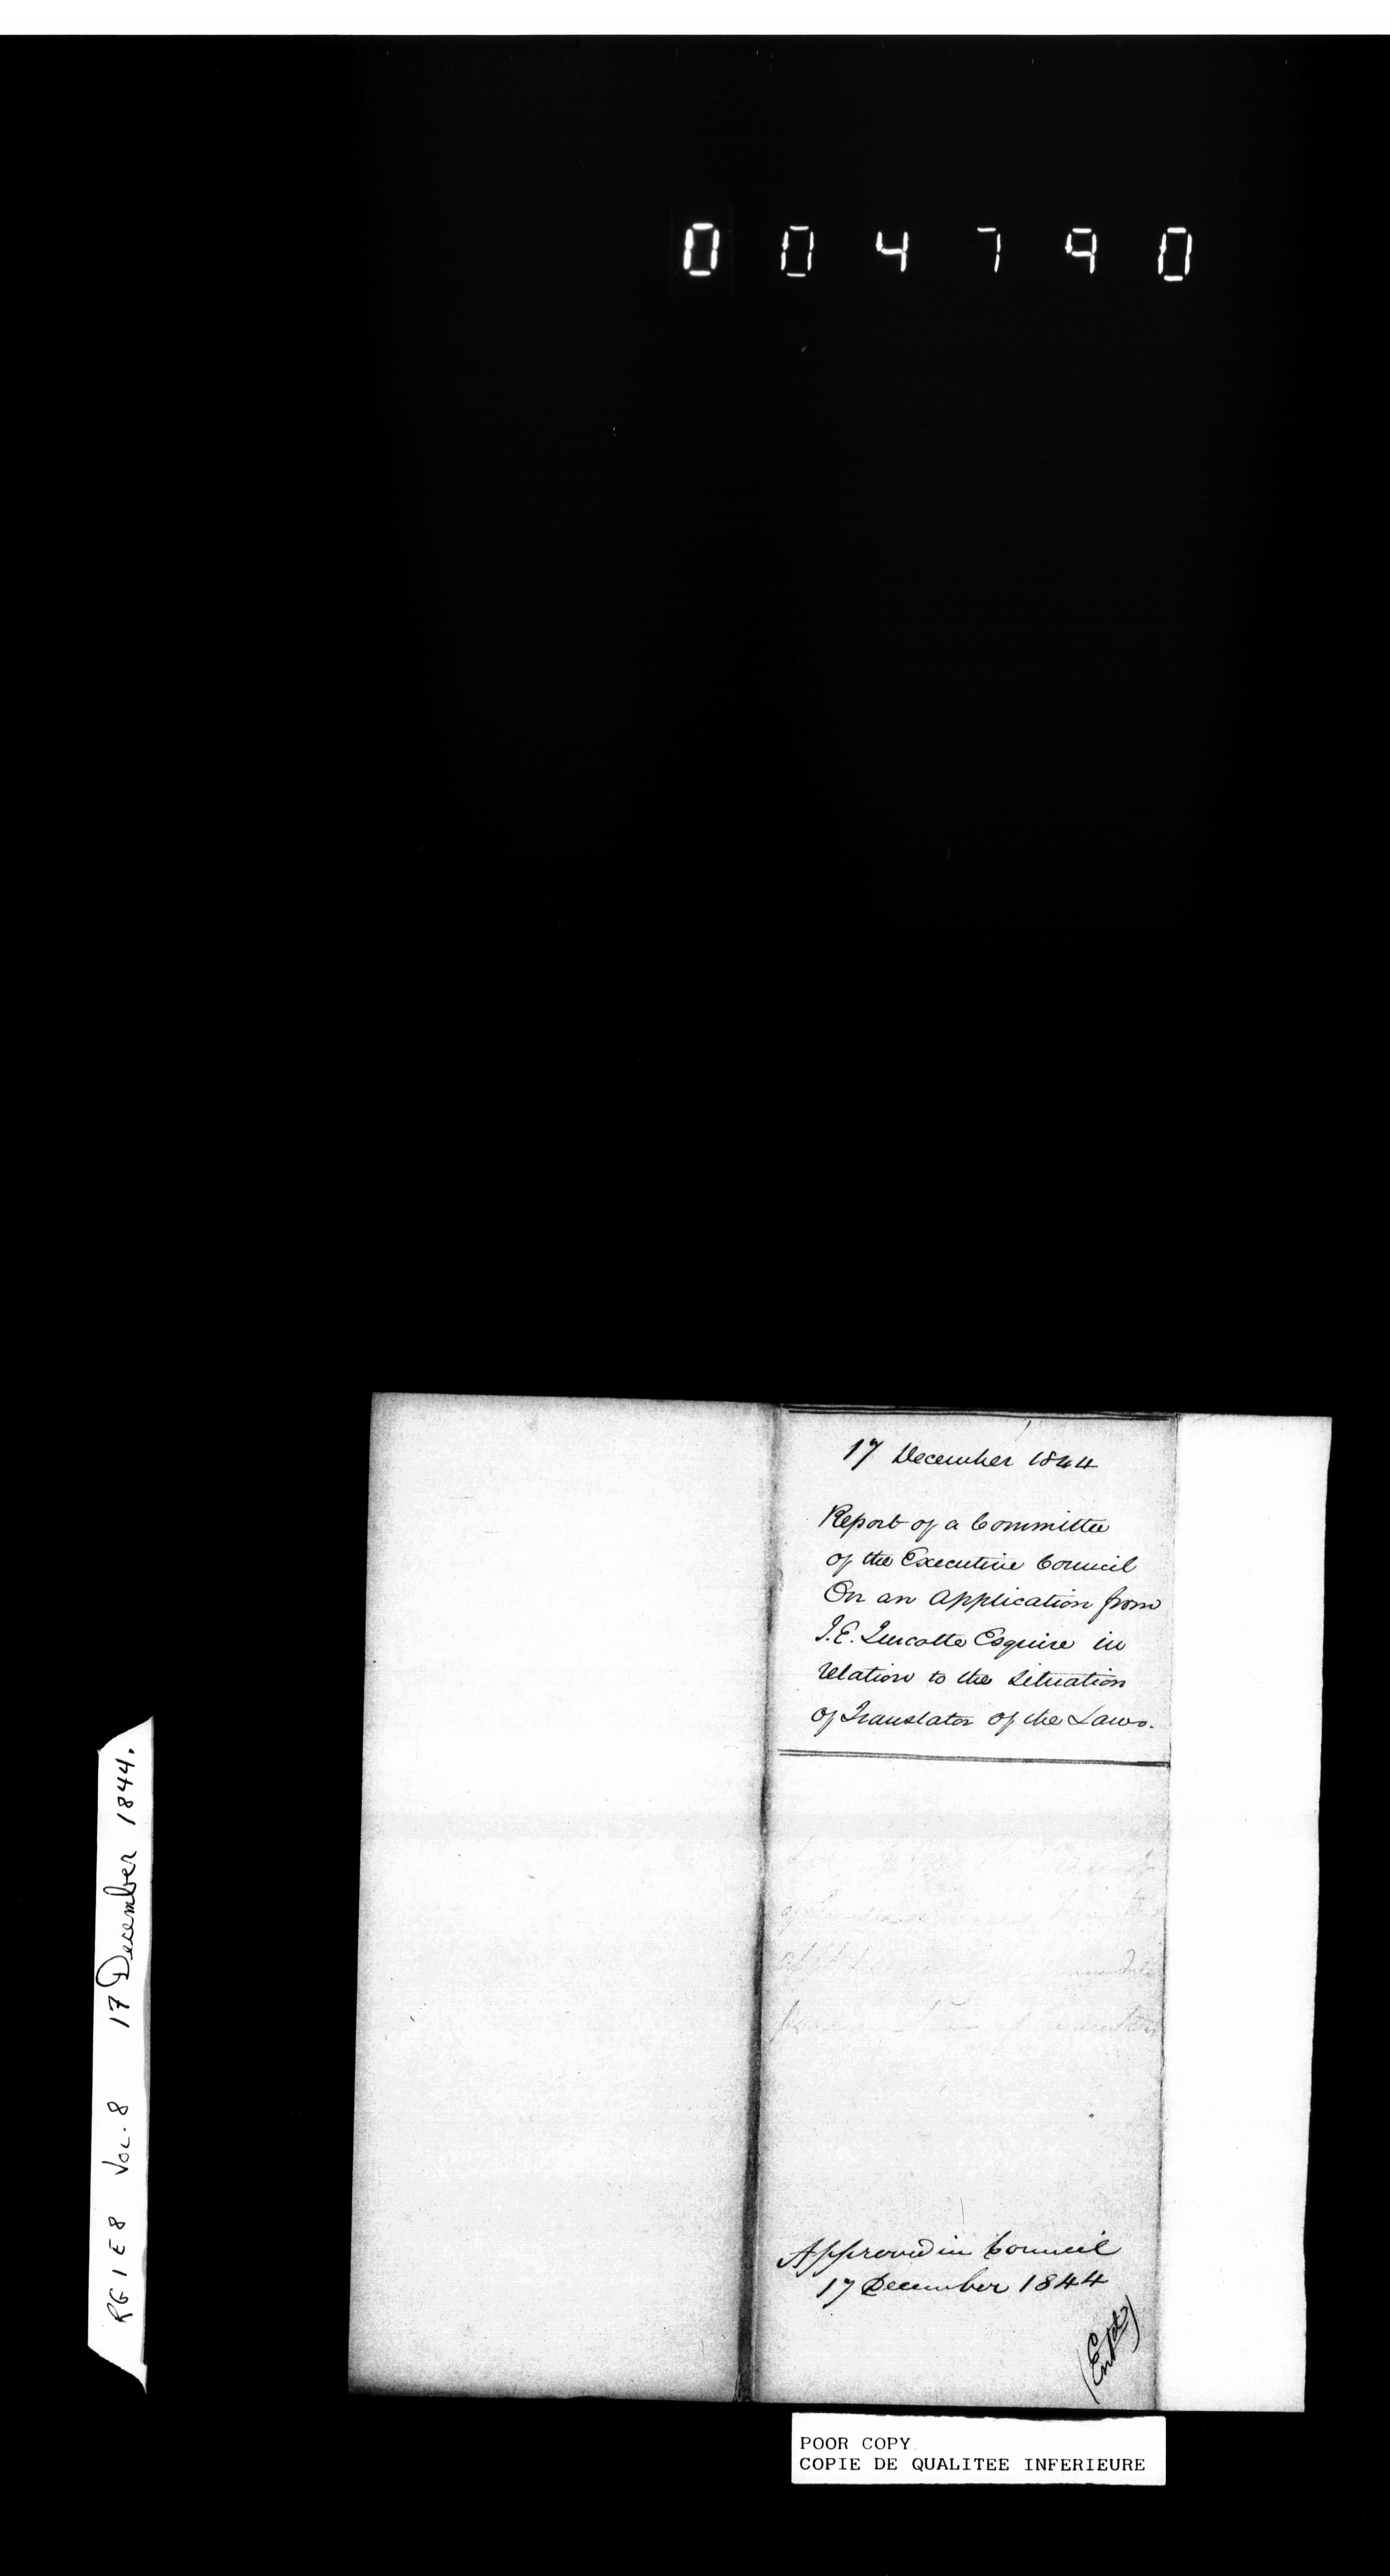 004790
17 December 1844
Report of a Committee
of the Executive Council
On an Application from
J.E. Turcotte Esquire in
relation to the Situation
of Translator of the Laws.
Approved in Council
17 December 1844
(Entd)
RG 1 E 8 Vol. 8 17 December 1844.
POOR COPY
COPIE DE QUALITEE INFERIEURE